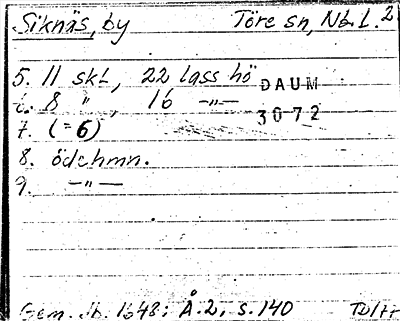 Siknäs, by Töre sn, Nb. l. 2
5. 11 skl, 22 lass hö DAUM
6. 8 " , 16 -"-
3072
7. (=6)
8. ödehmn.
9. -"-
Gem. Jb. 1648: Å.2, s. 140